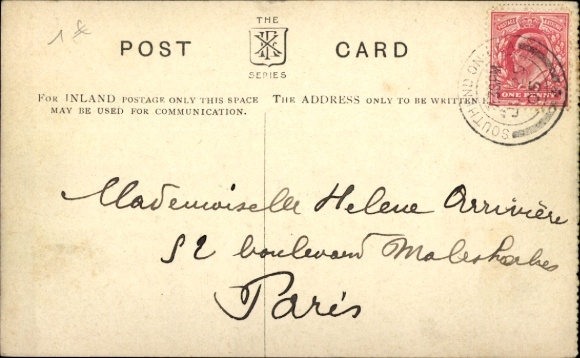 1 &
THE
POST CARD
SERIES
FOR INLAND POSTAGE ONLY THIS SPACE
MAY BE USED FOR COMMUNICATION.
THE ADDRESS ONLY TO BE WRITTEN
ONE PENNY
SOUTHEND ON
Mademoiselle Helene Arrivière
52 boulevard Malesherbes
Paris